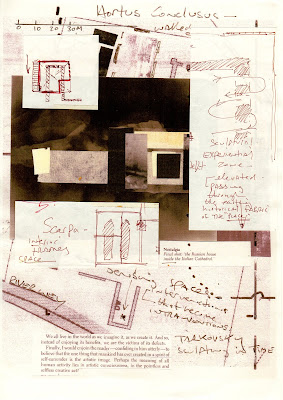 Hortus Conclusus –
walled
0 10 20 30M
SCULPTURAL
EXPERIENTIAL
ZONE –
[elevated –
PASSING
through
the
historical FABRIC
OF THE
5.
Scarpa –
Interior
FRAMES
SPACE
Nostalgia
Final shot: the Russian house
inside the Italian Cathedral.
SPACES
INTERVENTIONS
that become
INTRA-VENTIONS
TARKOVSKY
SCULPTING IN TIME
We all live in the world as we imagine it, as we create it. And so,
instead of enjoying its benefits, we are the victims of its defects.
Finally, I would enjoin the reader—confiding in him utterly—to
believe that the one thing that mankind has ever created in a spirit of
self-surrender is the artistic image. Perhaps the meaning of all
human activity lies in artistic consciousness, in the pointless and
selfless creative act?